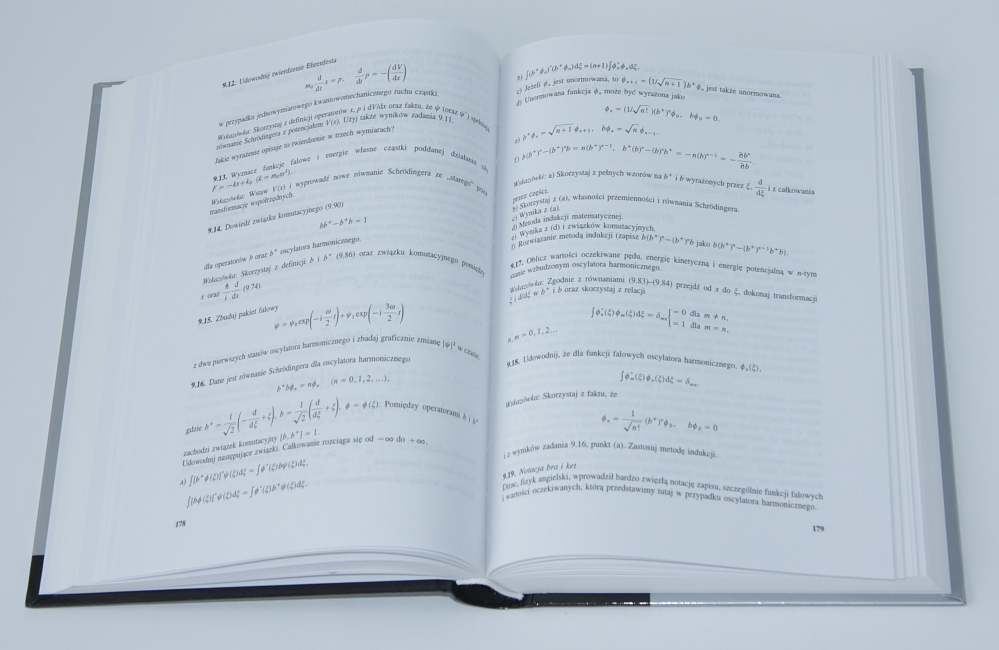 9.12. Udowodnij twierdzenie Ehrenfesta
m₀ d/dt x = p, d/dt p = −(dV/dx)
w przypadku jednowymiarowego kwantowomechanicznego ruchu cząstki.
Wskazówka: Skorzystaj z definicji operatorów x, p i dV/dx oraz faktu, że ψ (oraz ψ*) spełniają
równanie Schrödingera z potencjałem V(x). Użyj także wyników zadania 9.11.
Jakie wyrażenie opisuje to twierdzenie w trzech wymiarach?
9.13. Wyznacz funkcje falowe i energie własne cząstki poddanej działaniu siły
F = −kx+k₀ (k = m₀ω²).
Wskazówka: Wstaw V(x) i wyprowadź nowe równanie Schrödingera ze „starego” przez
transformację współrzędnych.
9.14. Dowiedź związku komutacyjnego (9.90)
bb⁺−b⁺b = 1
dla operatorów b oraz b⁺ oscylatora harmonicznego.
Wskazówka: Skorzystaj z definicji b i b⁺ (9.86) oraz związku komutacyjnego pomiędzy
x oraz ħ/i d/dx (9.74).
9.15. Zbuduj pakiet falowy
ψ = ψ₀ exp(−i ω/2 t) + ψ₁ exp(−i 3ω/2 t)
z dwu pierwszych stanów oscylatora harmonicznego i zbadaj graficznie zmianę |ψ|² w czasie.
9.16. Dane jest równanie Schrödingera dla oscylatora harmonicznego
b⁺bϕₙ = nϕₙ (n = 0, 1, 2, ...),
gdzie b⁺ = 1/√2 (−d/dξ + ξ), b = 1/√2 (d/dξ + ξ), ϕ = ϕ(ξ). Pomiędzy operatorami b i b⁺
zachodzi związek komutacyjny [b, b⁺] = 1.
Udowodnij następujące związki. Całkowanie rozciąga się od −∞ do +∞.
a) ∫[b⁺ϕ(ξ)]*ψ(ξ)dξ = ∫ϕ*(ξ)bψ(ξ)dξ,
∫[bϕ(ξ)]*ψ(ξ)dξ = ∫ϕ*(ξ)b⁺ψ(ξ)dξ.
178
b) ∫(b⁺ϕₙ)*(b⁺ϕₙ)dξ = (n+1)∫ϕₙ*ϕₙdξ.
c) Jeżeli ϕₙ jest unormowana, to ϕₙ₊₁ = (1/√(n+1))b⁺ϕₙ jest także unormowana.
d) Unormowana funkcja ϕₙ może być wyrażona jako
ϕₙ = (1/√n!)(b⁺)ⁿϕ₀, bϕ₀ = 0.
e) b⁺ϕₙ = √(n+1) ϕₙ₊₁, bϕₙ = √n ϕₙ₋₁.
f) b(b⁺)ⁿ−(b⁺)ⁿb = n(b⁺)ⁿ⁻¹, b⁺(b)ⁿ−(b)ⁿb⁺ = −n(b)ⁿ⁻¹ = −∂bⁿ/∂b.
Wskazówki: a) Skorzystaj z pełnych wzorów na b⁺ i b wyrażonych przez ξ, d/dξ i z całkowania
przez części.
b) Skorzystaj z (a), własności przemienności i równania Schrödingera.
c) Wynika z (a).
d) Metoda indukcji matematycznej.
e) Wynika z (d) i związków komutacyjnych.
f) Rozwiązanie metodą indukcji (zapisz b(b⁺)ⁿ−(b⁺)ⁿb jako b(b⁺)ⁿ−(b⁺)ⁿ⁻¹b⁺b).
9.17. Oblicz wartości oczekiwane pędu, energię kinetyczną i energię potencjalną w n-tym
stanie wzbudzonym oscylatora harmonicznego.
Wskazówka: Zgodnie z równaniami (9.83)–(9.84) przejdź od x do ξ, dokonaj transformacji
ξ i d/dξ w b⁺ i b oraz skorzystaj z relacji
∫ϕₙ*(ξ)ϕₘ(ξ)dξ = δₘₙ | = 0 dla m ≠ n,
= 1 dla m = n,
n, m = 0, 1, 2...
9.18. Udowodnij, że dla funkcji falowych oscylatora harmonicznego, ϕₙ(ξ),
∫ϕₘ*(ξ)ϕₙ(ξ)dξ = δₘₙ.
Wskazówka: Skorzystaj z faktu, że
ϕₙ = 1/√n! (b⁺)ⁿϕ₀, bϕ₀ = 0
i z wyników zadania 9.16, punkt (a). Zastosuj metodę indukcji.
9.19. Notacja bra i ket
Dirac, fizyk angielski, wprowadził bardzo zwięzłą notację zapisu, szczególnie funkcji falowych
i wartości oczekiwanych, którą przedstawimy tutaj w przypadku oscylatora harmonicznego.
179